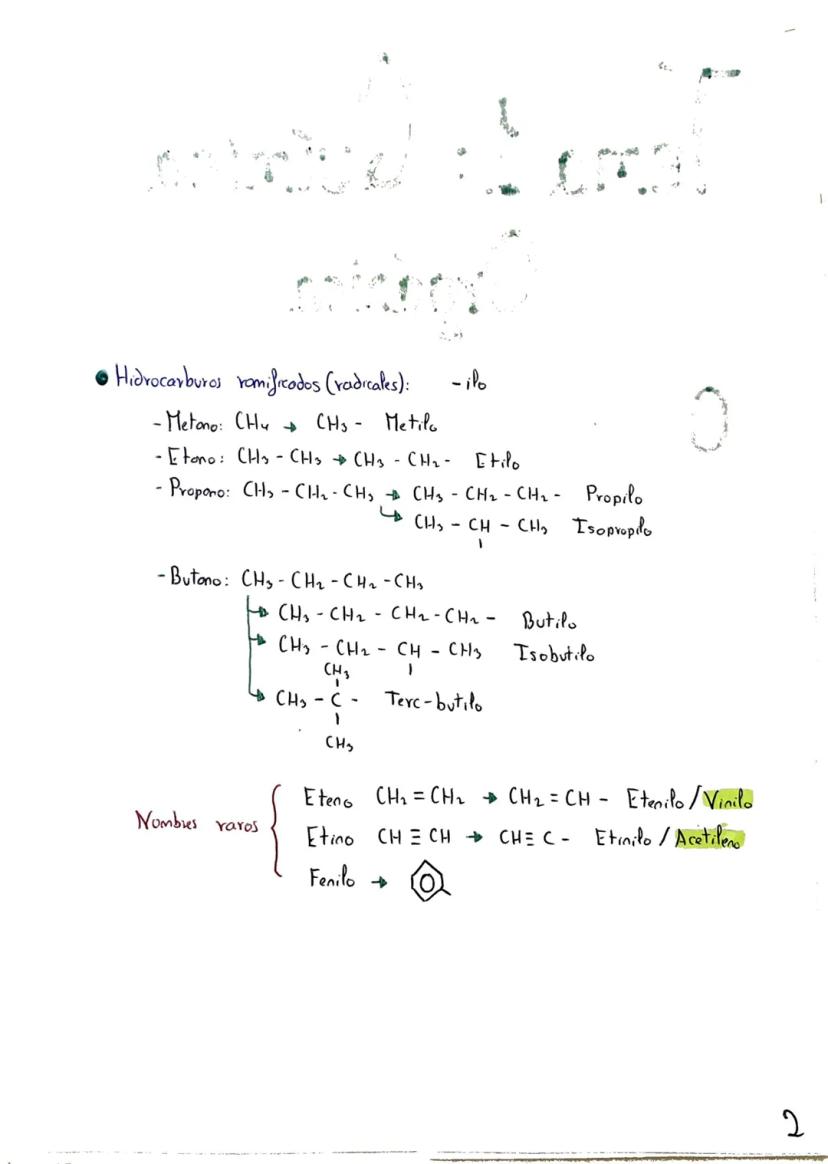 Hidrocarburos ramificados (radicales): -ilo
- Metano: CH₄ → CH₃ - Metilo
- Etano: CH₃ - CH₃ → CH₃ - CH₂ - Etilo
- Propano: CH₃ - CH₂ - CH₃ → CH₃ - CH₂ - CH₂ - Propilo
CH₃ - CH - CH₃ Isopropilo
- Butano: CH₃ - CH₂ - CH₂ - CH₃
CH₃ - CH₂ - CH₂ - CH₂ - Butilo
CH₃ - CH₂ - CH - CH₃ Isobutilo
CH₃
CH₃ - C - Terc-butilo
CH₃
Eteno CH₂ = CH₂ → CH₂ = CH - Etenilo / Vinilo
Nombres raros
Etino CH ≡ CH → CH ≡ C - Etinilo / Acetileno
Fenilo →
2